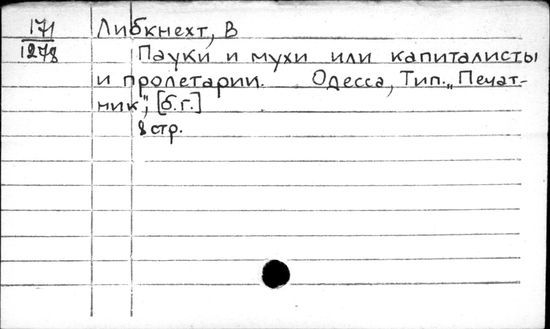 171
1278
Либкнехт, В
Пауки и мухи или капиталисты
и пролетарии. Одесса, Тип. „Печат-
ник", [б.г.]
8 стр.